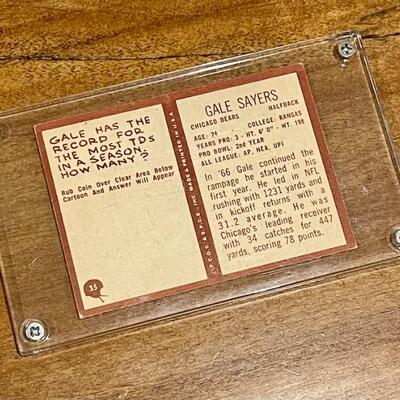 GALE HAS THE
RECORD FOR
THE MOST TDs
IN A SEASON.
HOW MANY?
Rub Coin Over Clear Area Below
Cartoon And Answer Will Appear
35
© P.C.G.C. & S.P.C.E., INC. MADE & PRINTED IN U.S.A.
GALE SAYERS
CHICAGO BEARS HALFBACK
AGE: 24 COLLEGE: KANSAS
YEARS PRO: 3 HT. 6' 0" WT. 198
PRO BOWL: 2ND YEAR
ALL LEAGUE: AP. NEA. UPI
In '66 Gale continued the
rampage he started in his
first year. He led in NFL
rushing with 1231 yards and
in kickoff returns with a
31.2 average. He was
Chicago's leading receiver
with 34 catches for 447
yards, scoring 78 points.